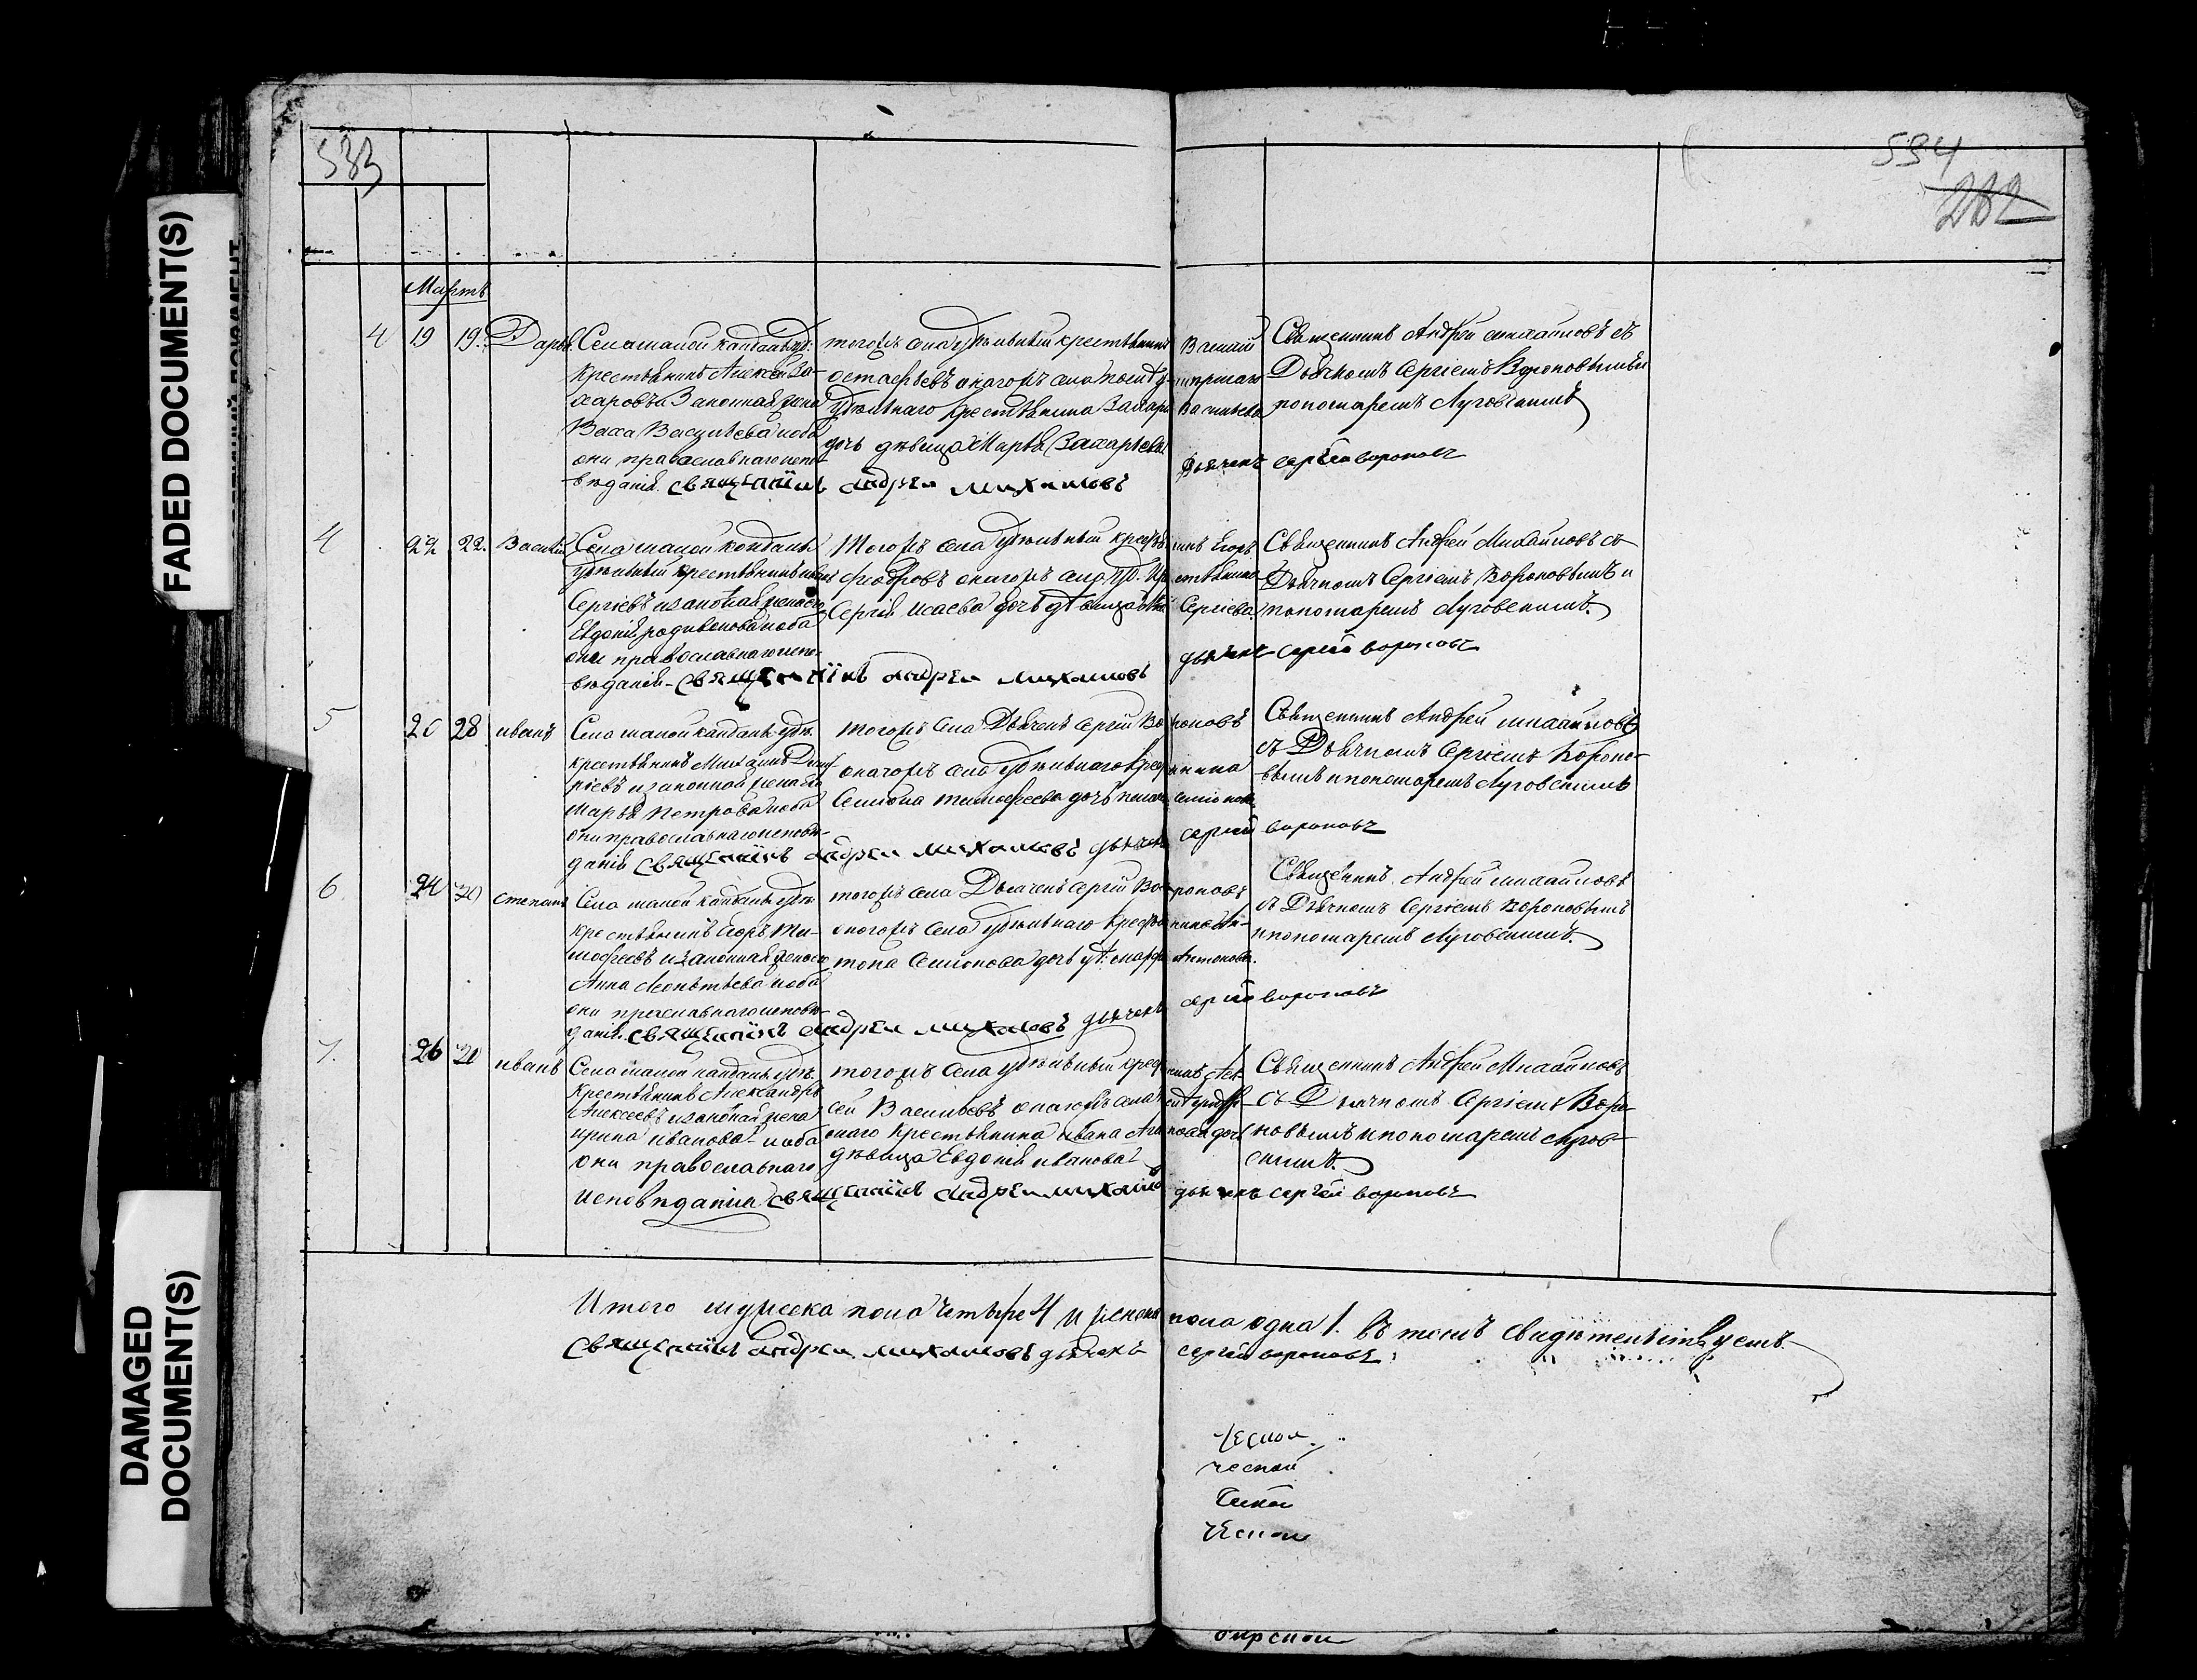 FADED DOCUMENT(S)
DAMAGED
DOCUMENT(S)
583
534
282
Мартъ
4 19 19. Дарья
Села малой кандалы уд:
крестьянинъ Алексей За-
харовъ Законная жена
Васильева оба
они православнаго испо-
вѣданія. священникъ андреи михаиловъ
тогожъ села удѣльный крестьянинъ Василий
остафьевъ онагожъ села
удѣльнаго крестьянина Захара Васильева
дочь дѣвица Марья Захарьева
дьячекъ сергей вороновъ
Священникъ Андрей михайловъ съ
Дьячкомъ Сергіемъ Вороновымъ и
пономаремъ Луговскимъ
4 22 22. Василій
Села малой кандалы
удѣльный крестьянинъ иванъ
Сергіевъ и законная жена его
Евдокія родивонова оба
они православнаго испо-
вѣданія - священникъ андреи михаиловъ
Тогожъ села удѣльный крестьянинъ Егоръ
феодоровъ онагожъ села уд. крестьянина
Сергія исаева дочь дѣвица Сергіева.
дьячекъ сергей вороновъ
Священникъ Андрей Михайловъ съ
Дьячкомъ Сергіемъ Вороновымъ и
пономаремъ Луговскимъ.
5 26 28 иванъ
Села малой кандалы удѣ.
крестьянинъ Михаилъ Дмит
ріевъ и законная жена его
Марья Петрова оба
они православнаго исповѣ-
данія священникъ андреи михаиловъ дьячекъ сергей вороновъ
тогожъ села Дьячекъ Сергій Вороновъ
онагожъ села удѣльнаго крестьянина
Семіона тимофеева дочь Семіонова.
Священникъ Андрей михайловъ
съ Дьячкомъ Сергіемъ Вороно-
вымъ и пономаремъ Луговскимъ
6 24 30 степанъ
Села малой кандалы удѣ.
крестьянинъ Егоръ Ти-
мофеевъ и законная жена его
Анна Леонтьева оба
они православнаго исповѣ-
данія. священникъ андреи михаиловъ дьячекъ сергей вороновъ
тогожъ села Дьячекъ Сергій Вороновъ
оногожъ села удѣльнаго крестьянина Ан-
тона Семионова дочь дѣ: марфа Антонова.
Священникъ Андрей михайловъ
съ Дьячкомъ Сергіемъ Вороновымъ
и пономаремъ Луговскимъ.
7. 26 30 иванъ
Села малой кандалы удѣ.
крестьянинъ Александръ
Алексеевъ и законная жена
ирина иванова оба
они православнаго
исповѣданія. священникъ андреи михаиловъ
тогожъ села удѣльный крестьянинъ Алек
сей Васильевъ онагожъ села
наго крестьянина ивана дочь
дѣвица Евдокія иванова
дьячекъ сергей вороновъ
Священникъ Андрей Михайловъ
съ Дьячкомъ Сергіемъ Воро-
новымъ и пономаремъ Лугов-
скимъ.
Итого мужеска пола четыре 4 и женска пола одна 1. въ томъ свидѣтельствуемъ
священникъ андреи михаиловъ дьячекъ сергей вороновъ